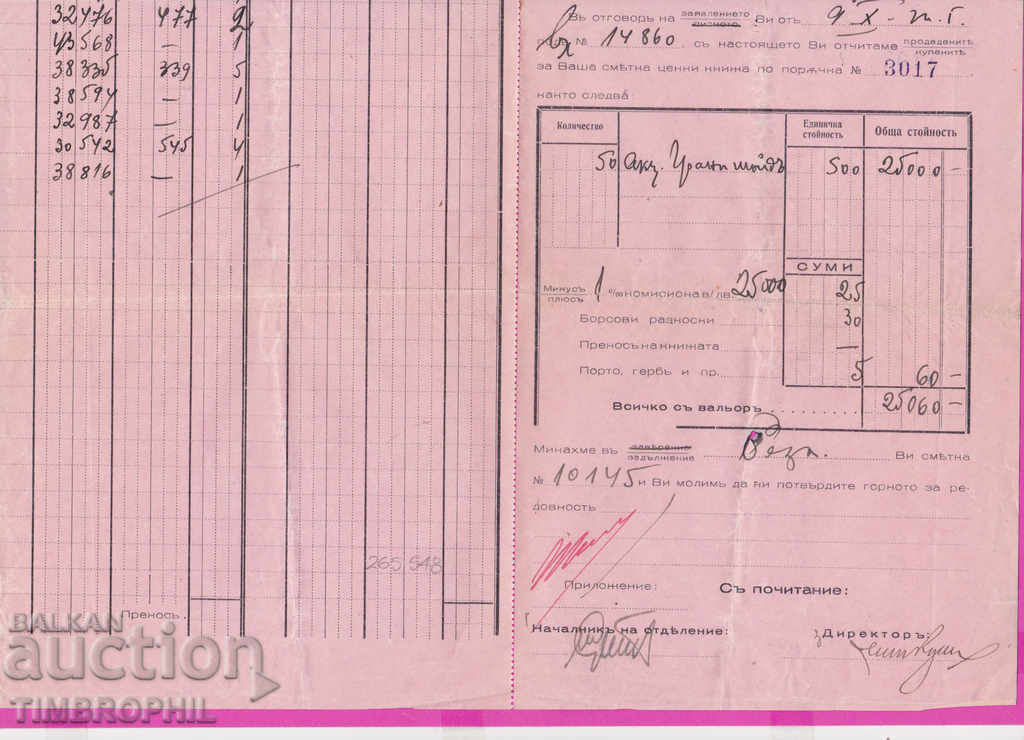 32476 477 2
43568 — 1
38335 339 5
38594 — 1
32987 — 1
30542 545 4
38816 — 1
265 548
Преносъ.
Въ отговоръ на замалението писмото Ви отъ 9-X-т.г.
№ 14860, съ настоящето Ви отчитаме продаденитѣ купенитѣ
за Ваша смѣтна ценни книжа по порѫчка № 3017
както следва:
Количество Единична стойность Обща стойность
50 акц. Гранитоидъ 500 25000 —
СУМИ
Минусъ плюсъ 1 ‰ комисиона в/ лв. 25000 25
Борсови разноски 30
Преносъ на книжата —
Порто, гербъ и пр. 5 60 —
Всичко съ вальоръ 25060 —
Минахме въ заверение задължение Ви смѣтка
№ 10145 и Ви молимъ да ни потвърдите горното за ре-
довность
Приложение: Съ почитание:
Началникъ на отдѣление: Директоръ:
BALKAN
auction
TIMBROPHIL